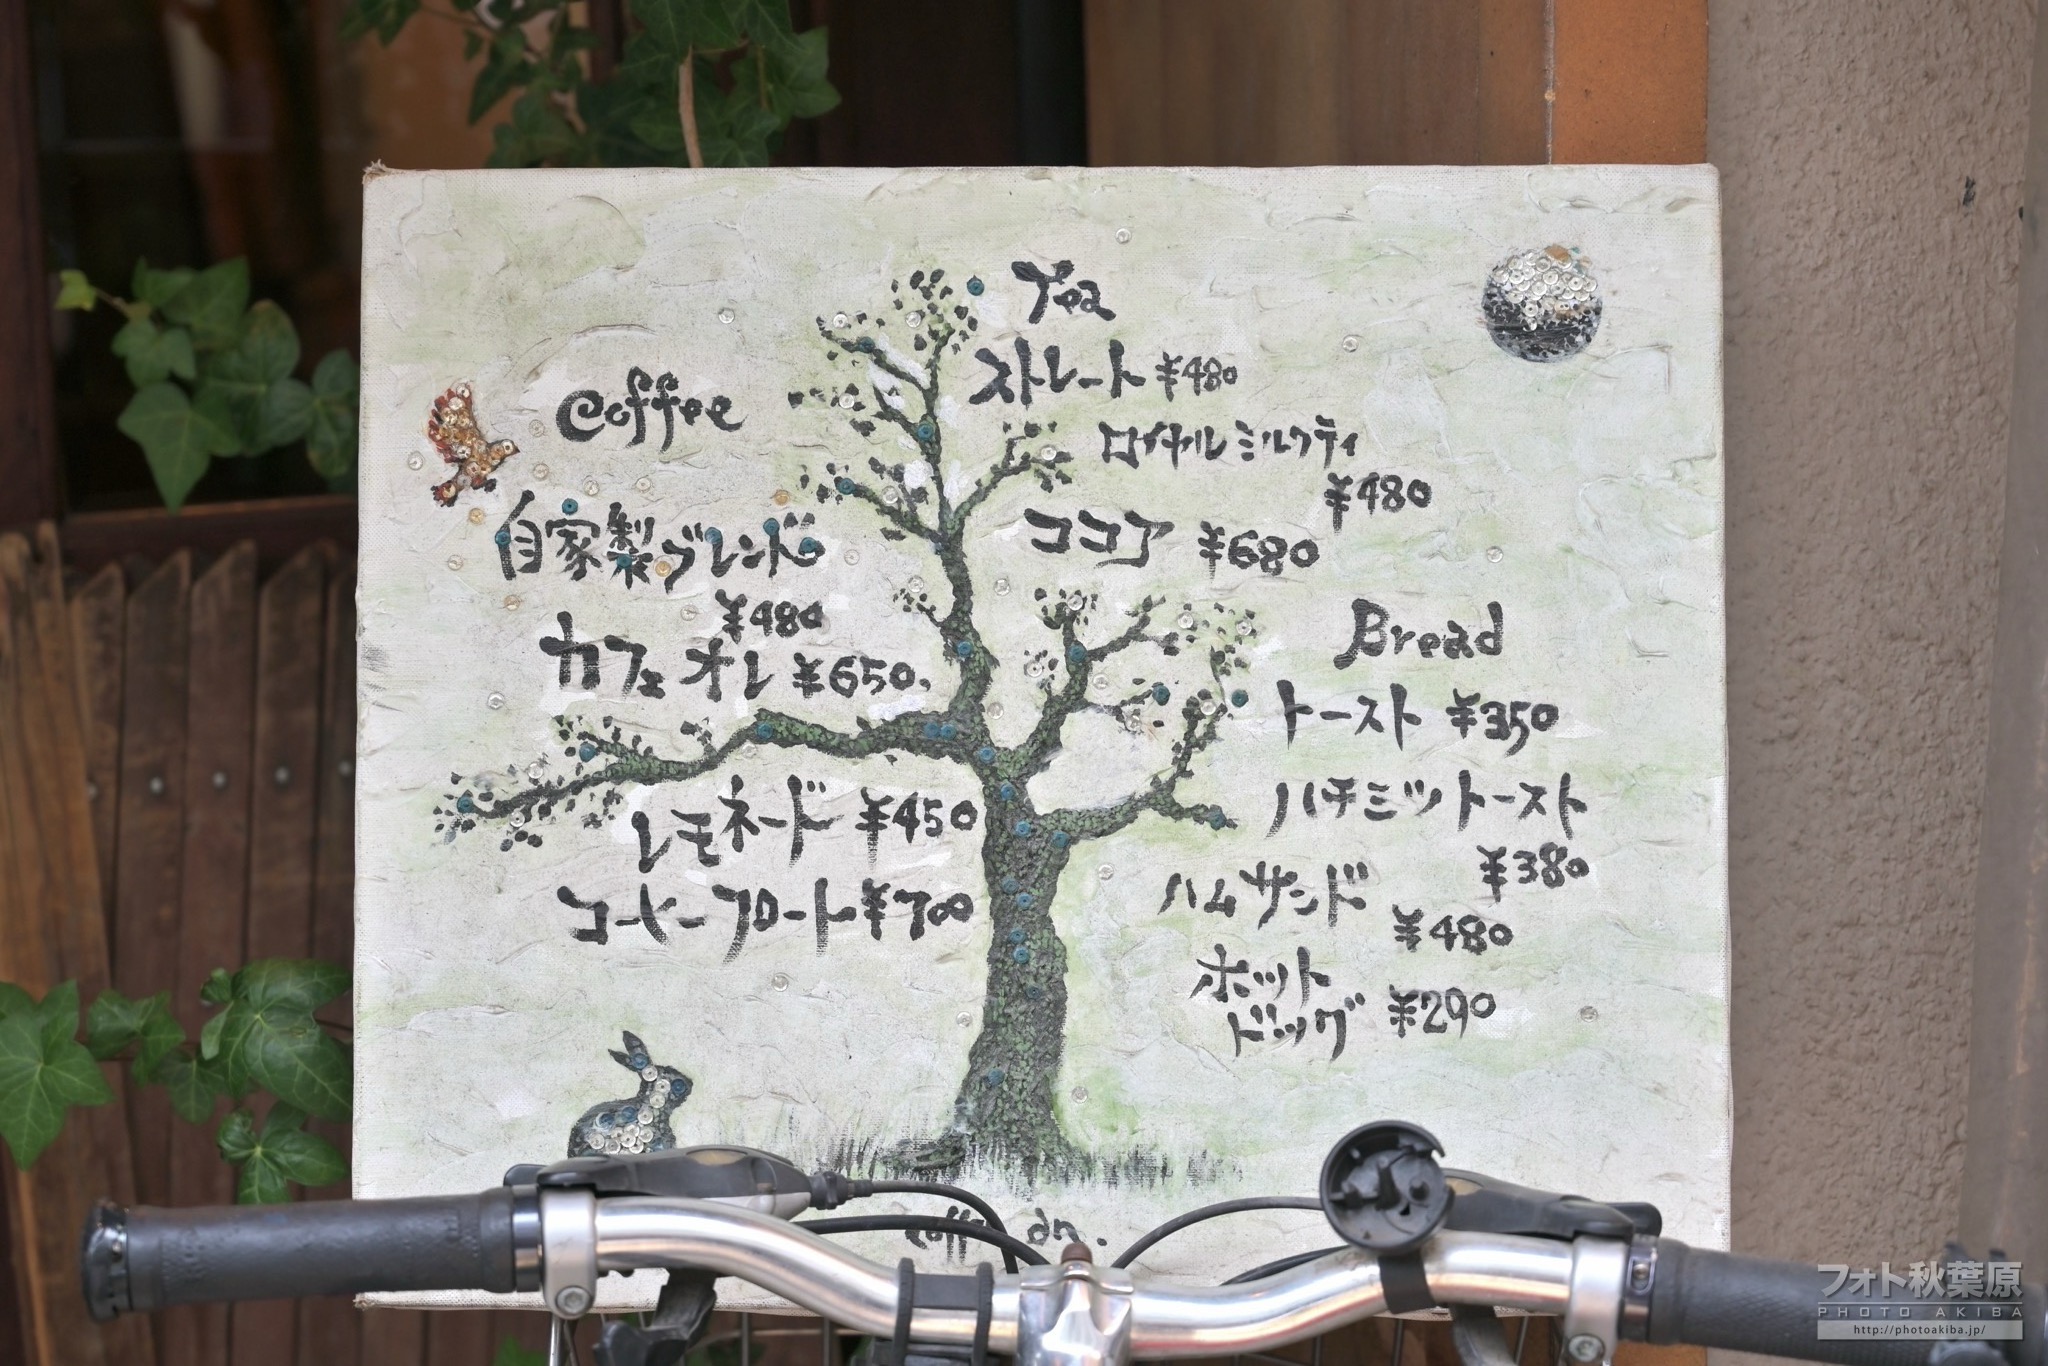 Coffee
自家製ブレンド
¥480
カフェオレ ¥650.
レモネード ¥450
コーヒーフロート ¥700
Tea
ストレート ¥480
ロイヤルミルクティ
¥480
ココア ¥680
Bread
トースト ¥350
ハチミツトースト
¥380
ハムサンド
¥480
ホット
ドッグ ¥290
フォト秋葉原
PHOTO AKIBA
http://photoakiba.jp/